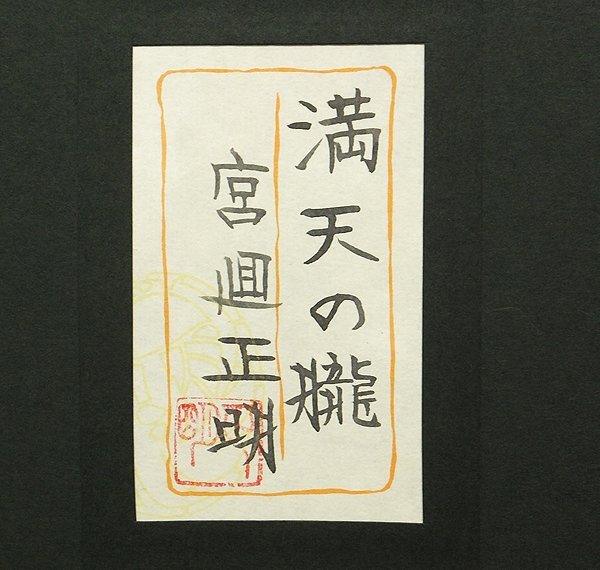 満天の朧
宮廽正明